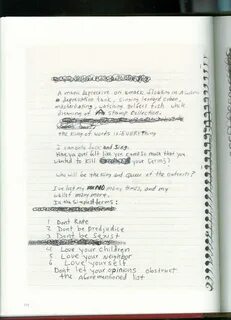 A manic depressive on smack floating in a warm
a deprivation tank, singing leonard cohen,
masturbating, watching goldfish while
dreaming of A stamp collection.
The King of words is: EVERYthing
I cannot fuck and Sing.
Have you ever felt like you cared so much that you
wanted to kill your Germs?
Who will be the King and Queen of the outcasts?
I've lost my mind many times, and my
wallet many more.
In the simplest terms:
1 Dont Rape
2 Dont be prejudice
3 Dont be sexist
4 Love your children
5 Love your neighbor
6 Love yourself
Dont let your opinions obstruct
the aforementioned list